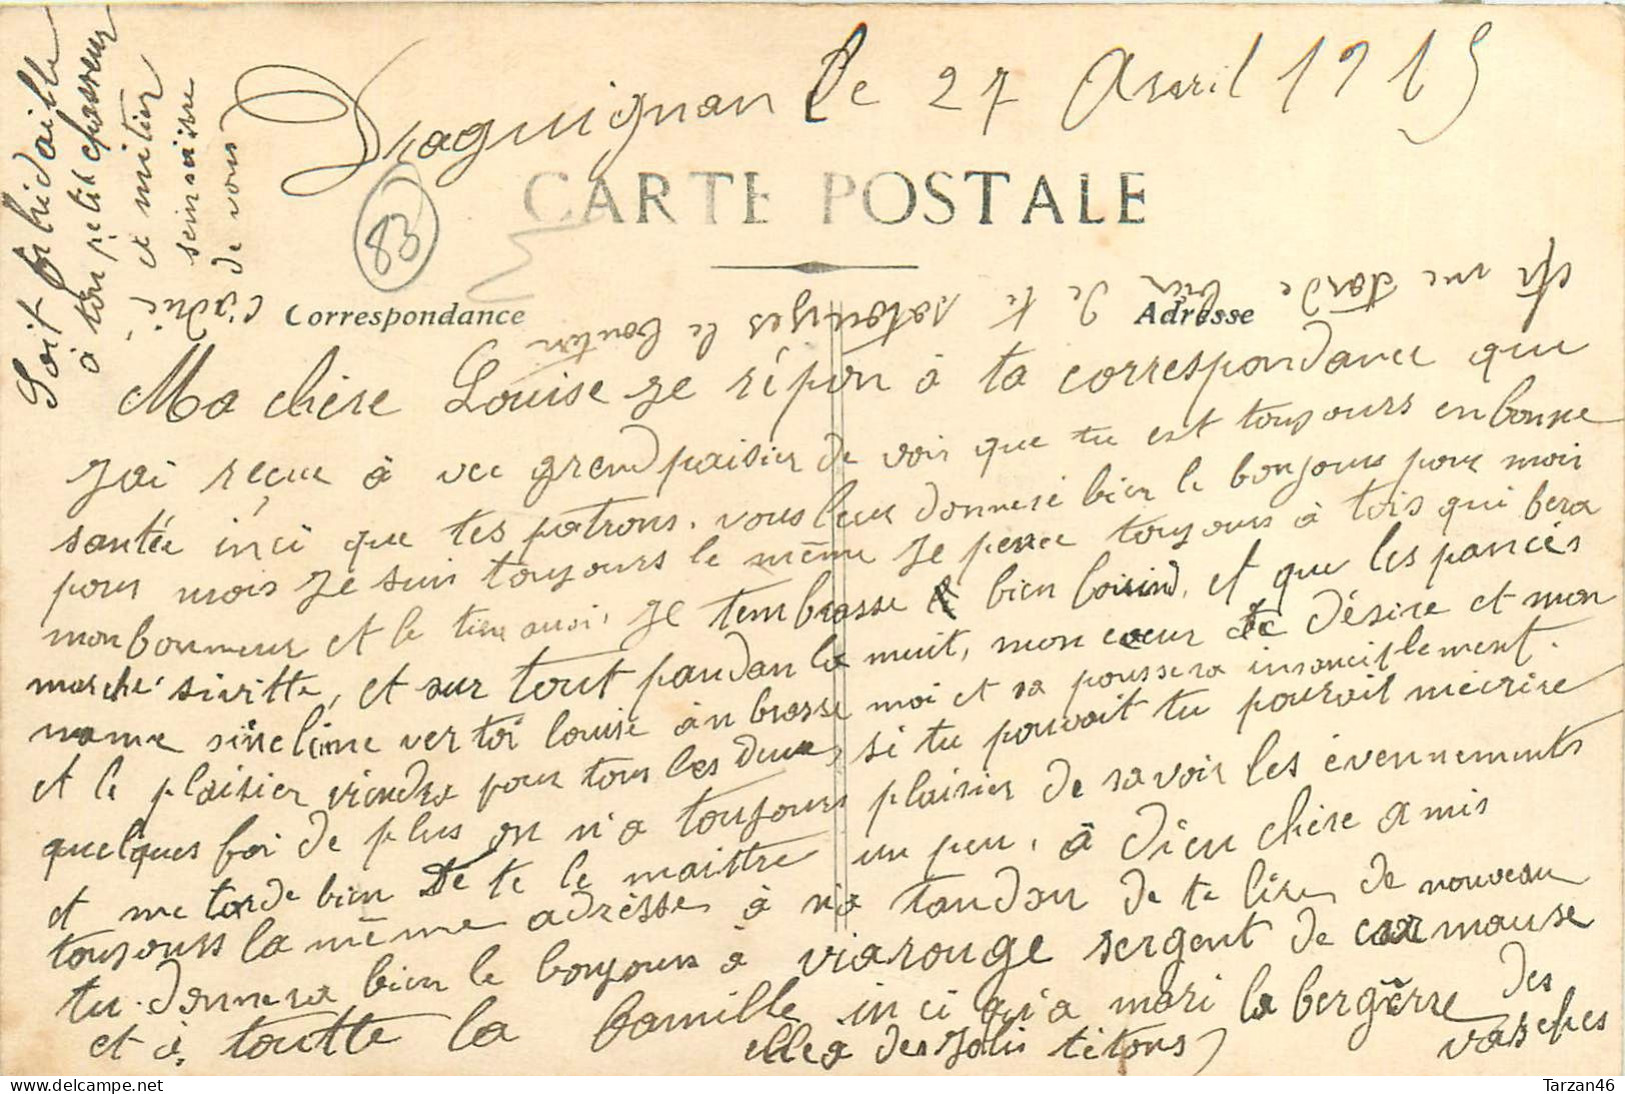 Draguignan le 27 Avril 1915
CARTE POSTALE
83
Correspondance
Adresse
Ma chère Louise je répon à ta correspondance que
jai reçue à vec grend plaisier de voir que tu est toujours en bonne
santée inci que tes patrons. vous leur donneré bien le bonjours pour moi
pour mois je suis toujours le même je pence toujours à tois qui fera
mon bonneur et le tien ausi. je tembrasse bien loin, et que les pancés
marche sivitte, et sur tout pandan la nuit, mon cœur te désire et mon
name sineline ver toi louise ànbrasse moi et sa poussera insanciblement.
et le plaisier viendra pour tous les deux, si tu pouvait tu pouroit mécrire
quelques foi de plus on n'a toujours plaisier de savoir les évennements
et me tarde bien de te le maittre un peu, à dieu chère amis
toujours la même adrèsse à n'a tandan de te lire de nouveau
tu donnera bien le bonjours à viarouge sergent de car mause
et à toutte la famille inci qu'a mari la bergèrre des vasches
elle a des joli titons
Soit
à ton petit chasseur
et
de vous
me tarde bien de te le
Tarzan46